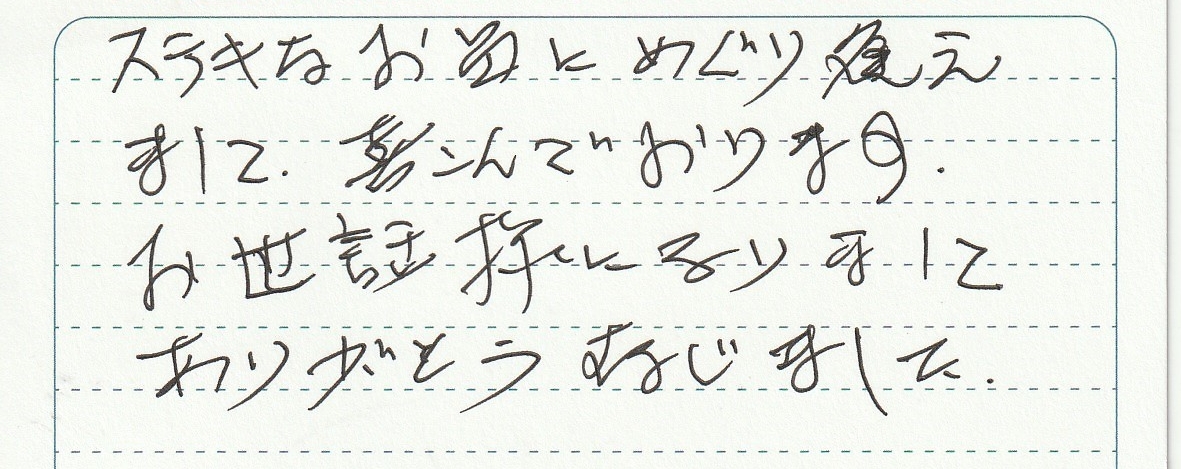 ステキなお皿にめぐり逢え
まして.喜こんでおります.
お世話様になりまして
ありがとう じました.